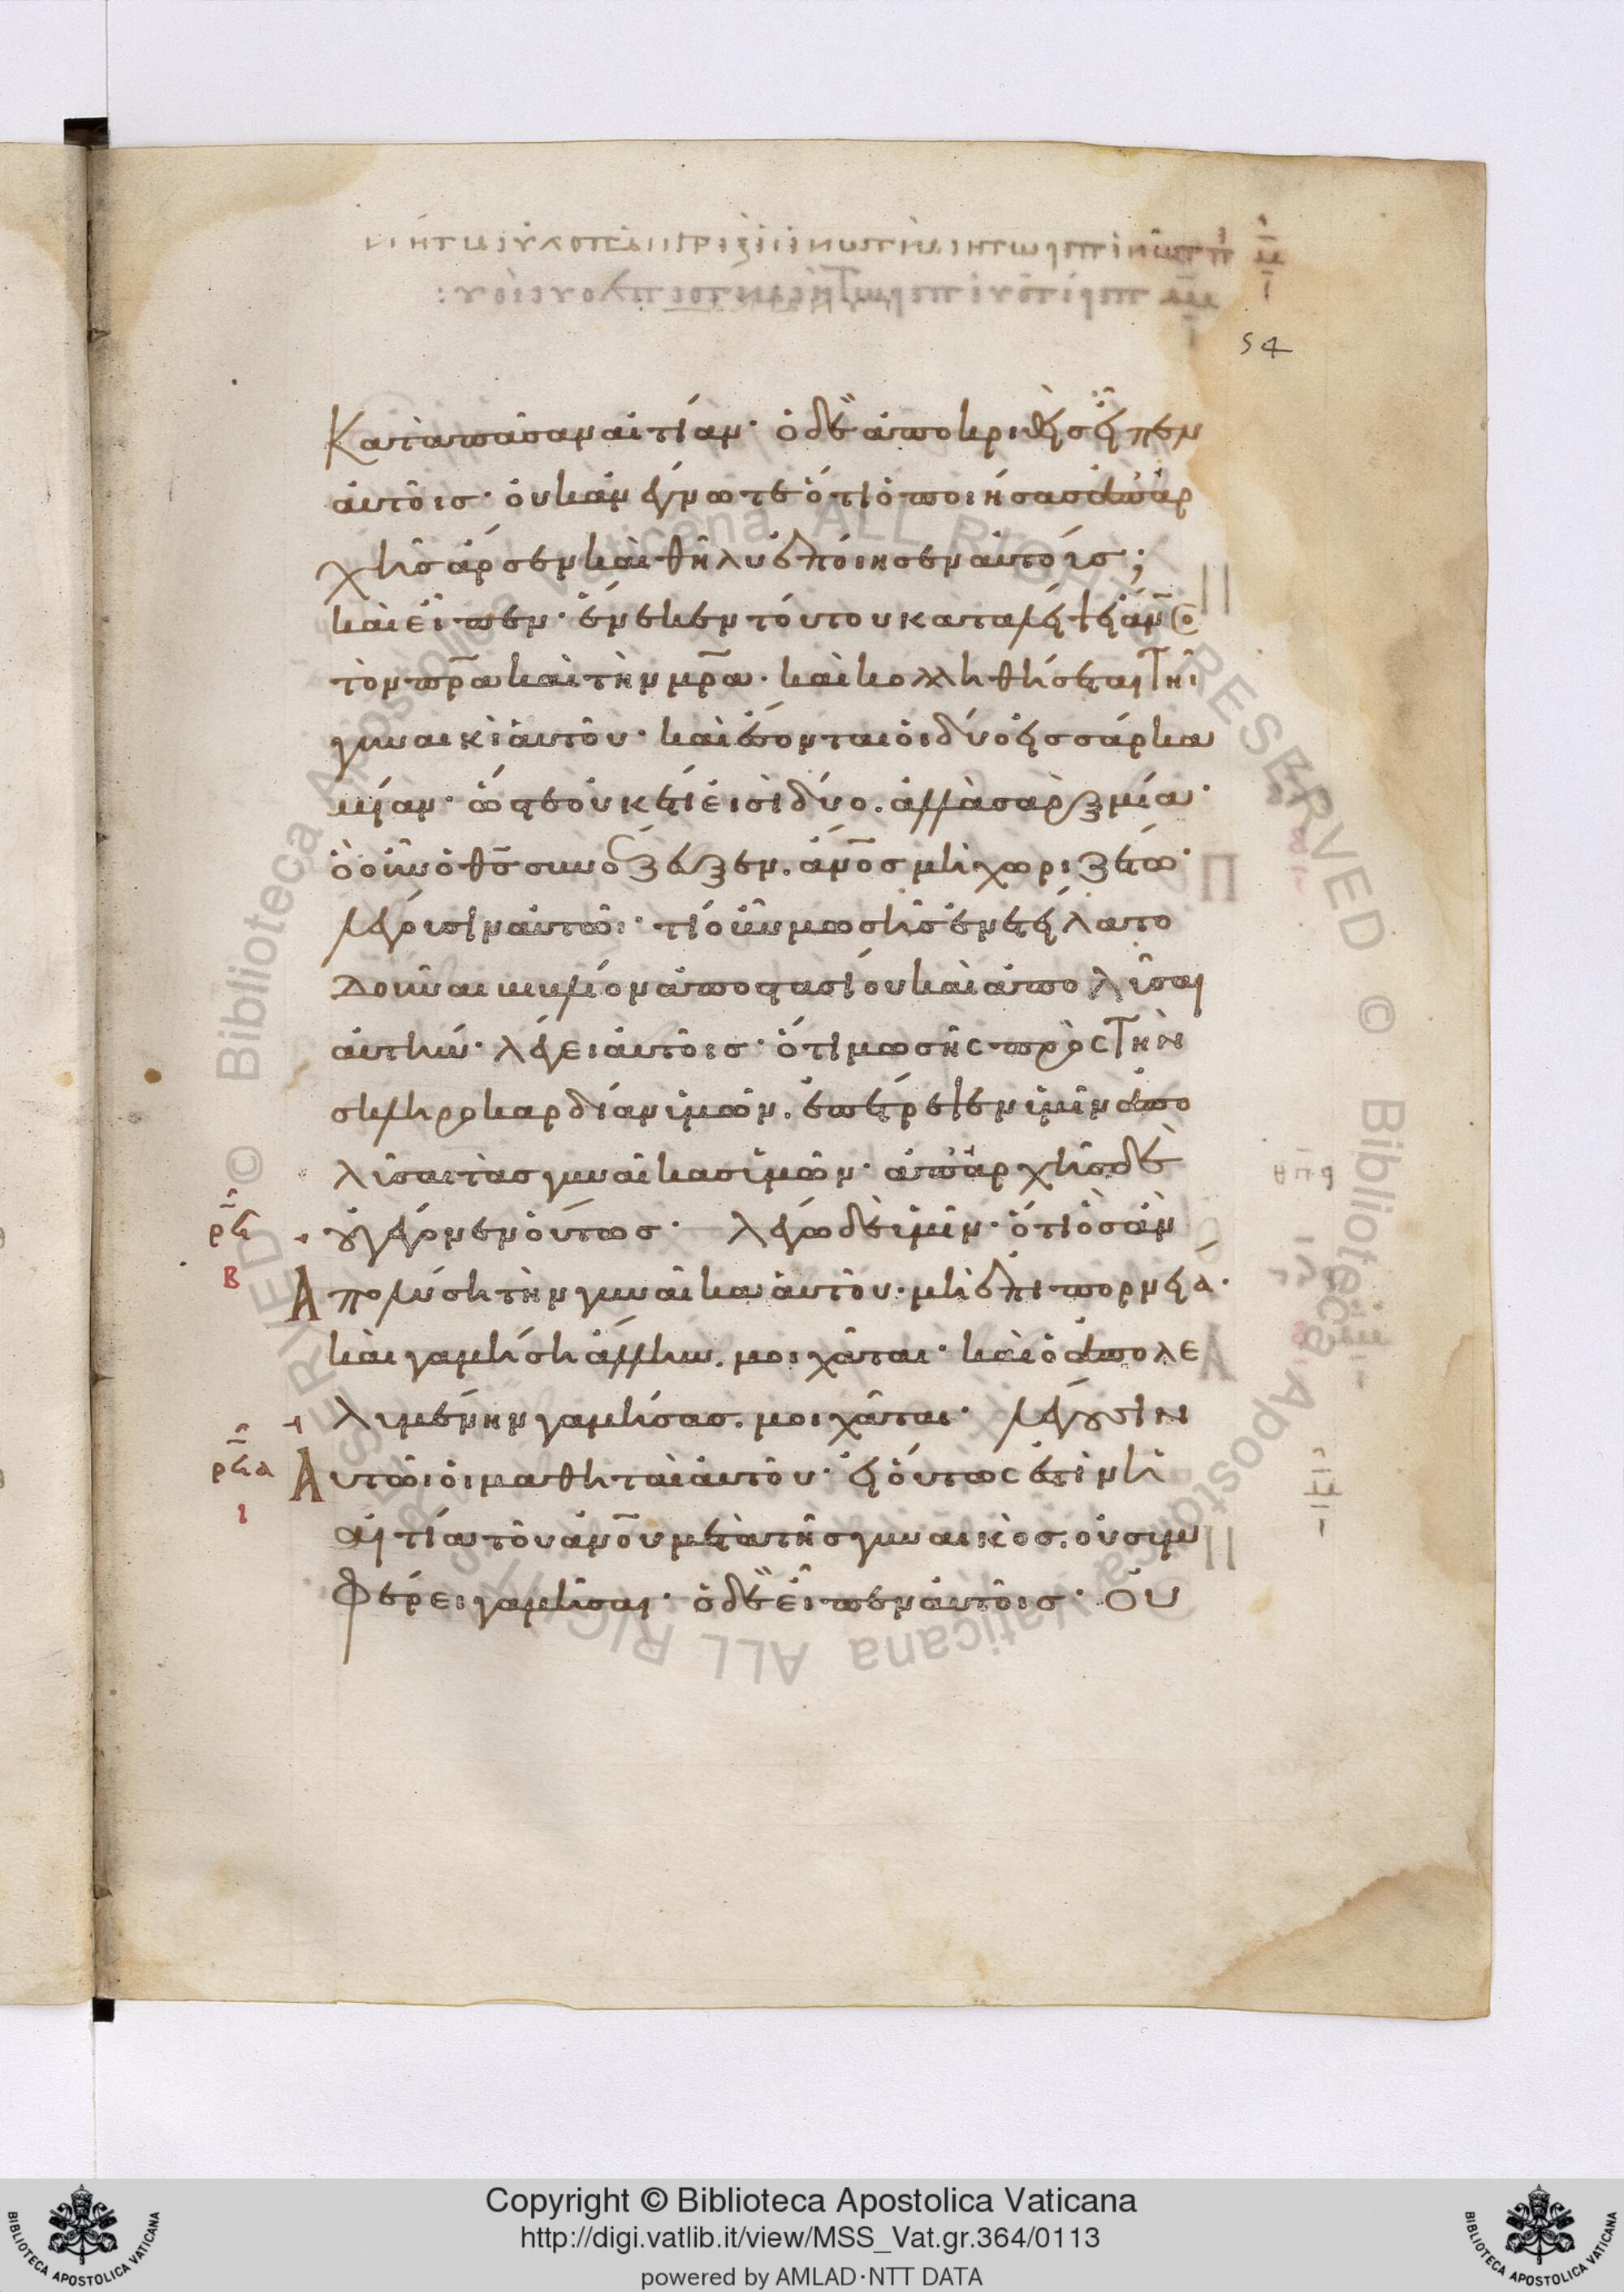 54
Κατὰ πᾶσαν αἰτίαν· ὁ δὲ ἀποκριθεὶς εἶπεν
αὐτοῖς· οὐκ ἀνέγνωτε ὅτι ὁ ποιήσας ἀπ' ἀρ
χῆς ἄρσεν καὶ θῆλυ ἐποίησεν αὐτούς;
καὶ εἶπεν· ἕνεκεν τούτου καταλείψει ἄν̅ο̅ς̅
τὸν π̅ρ̅α̅ καὶ τὴν μ̅ρ̅α̅· καὶ κολληθήσεται τῆι
γυναικὶ αὐτοῦ· καὶ ἔσονται οἱ δύο εἰς σάρκα
μίαν· ὥστε οὐκέτι εἰσὶ δύο. ἀλλὰ σὰρξ μία·
ὃ οὖν ὁ θ̅ς̅ συνέζευξεν. ἄν̅ο̅ς μὴ χωριζέτω·
λέγουσιν αὐτῶι· τί οὖν μωσῆς ἐνετείλατο
Δοῦναι βιβλίον ἀποστασίου καὶ ἀπολῦσαι
αὐτήν· λέγει αὐτοῖς· ὅτι μωσῆς πρὸς τὴν
σκληροκαρδίαν ὑμῶν. ἐπέτρεψεν ὑμῖν ἀπο
λῦσαι τὰς γυναῖκας ὑμῶν· ἀπ' ἀρχῆς δὲ
οὐ γέγονεν οὕτως· λέγω δὲ ὑμῖν· ὅτι ὃς ἂν
Ἀπολύσῃ τὴν γυναῖκα αὐτοῦ· μὴ ἐπὶ πορνείᾳ·
καὶ γαμήσῃ ἄλλην. μοιχᾶται· καὶ ὁ ἀπολε
λυμένην γαμήσας. μοιχᾶται· λέγουσιν
Αὐτῶι οἱ μαθηταὶ αὐτοῦ· εἰ οὕτως ἐστὶν ἡ
αἰτία τοῦ ἀν̅ο̅υ μετὰ τῆς γυναικὸς. οὐ συμ
φέρει γαμῆσαι· ὁ δὲ εἶπεν αὐτοῖς· Οὐ
Copyright © Biblioteca Apostolica Vaticana
http://digi.vatlib.it/view/MSS_Vat.gr.364/0113
powered by AMLAD·NTT DATA
BIBLIOTECA APOSTOLICA VATICANA
BIBLIOTECA APOSTOLICA VATICANA